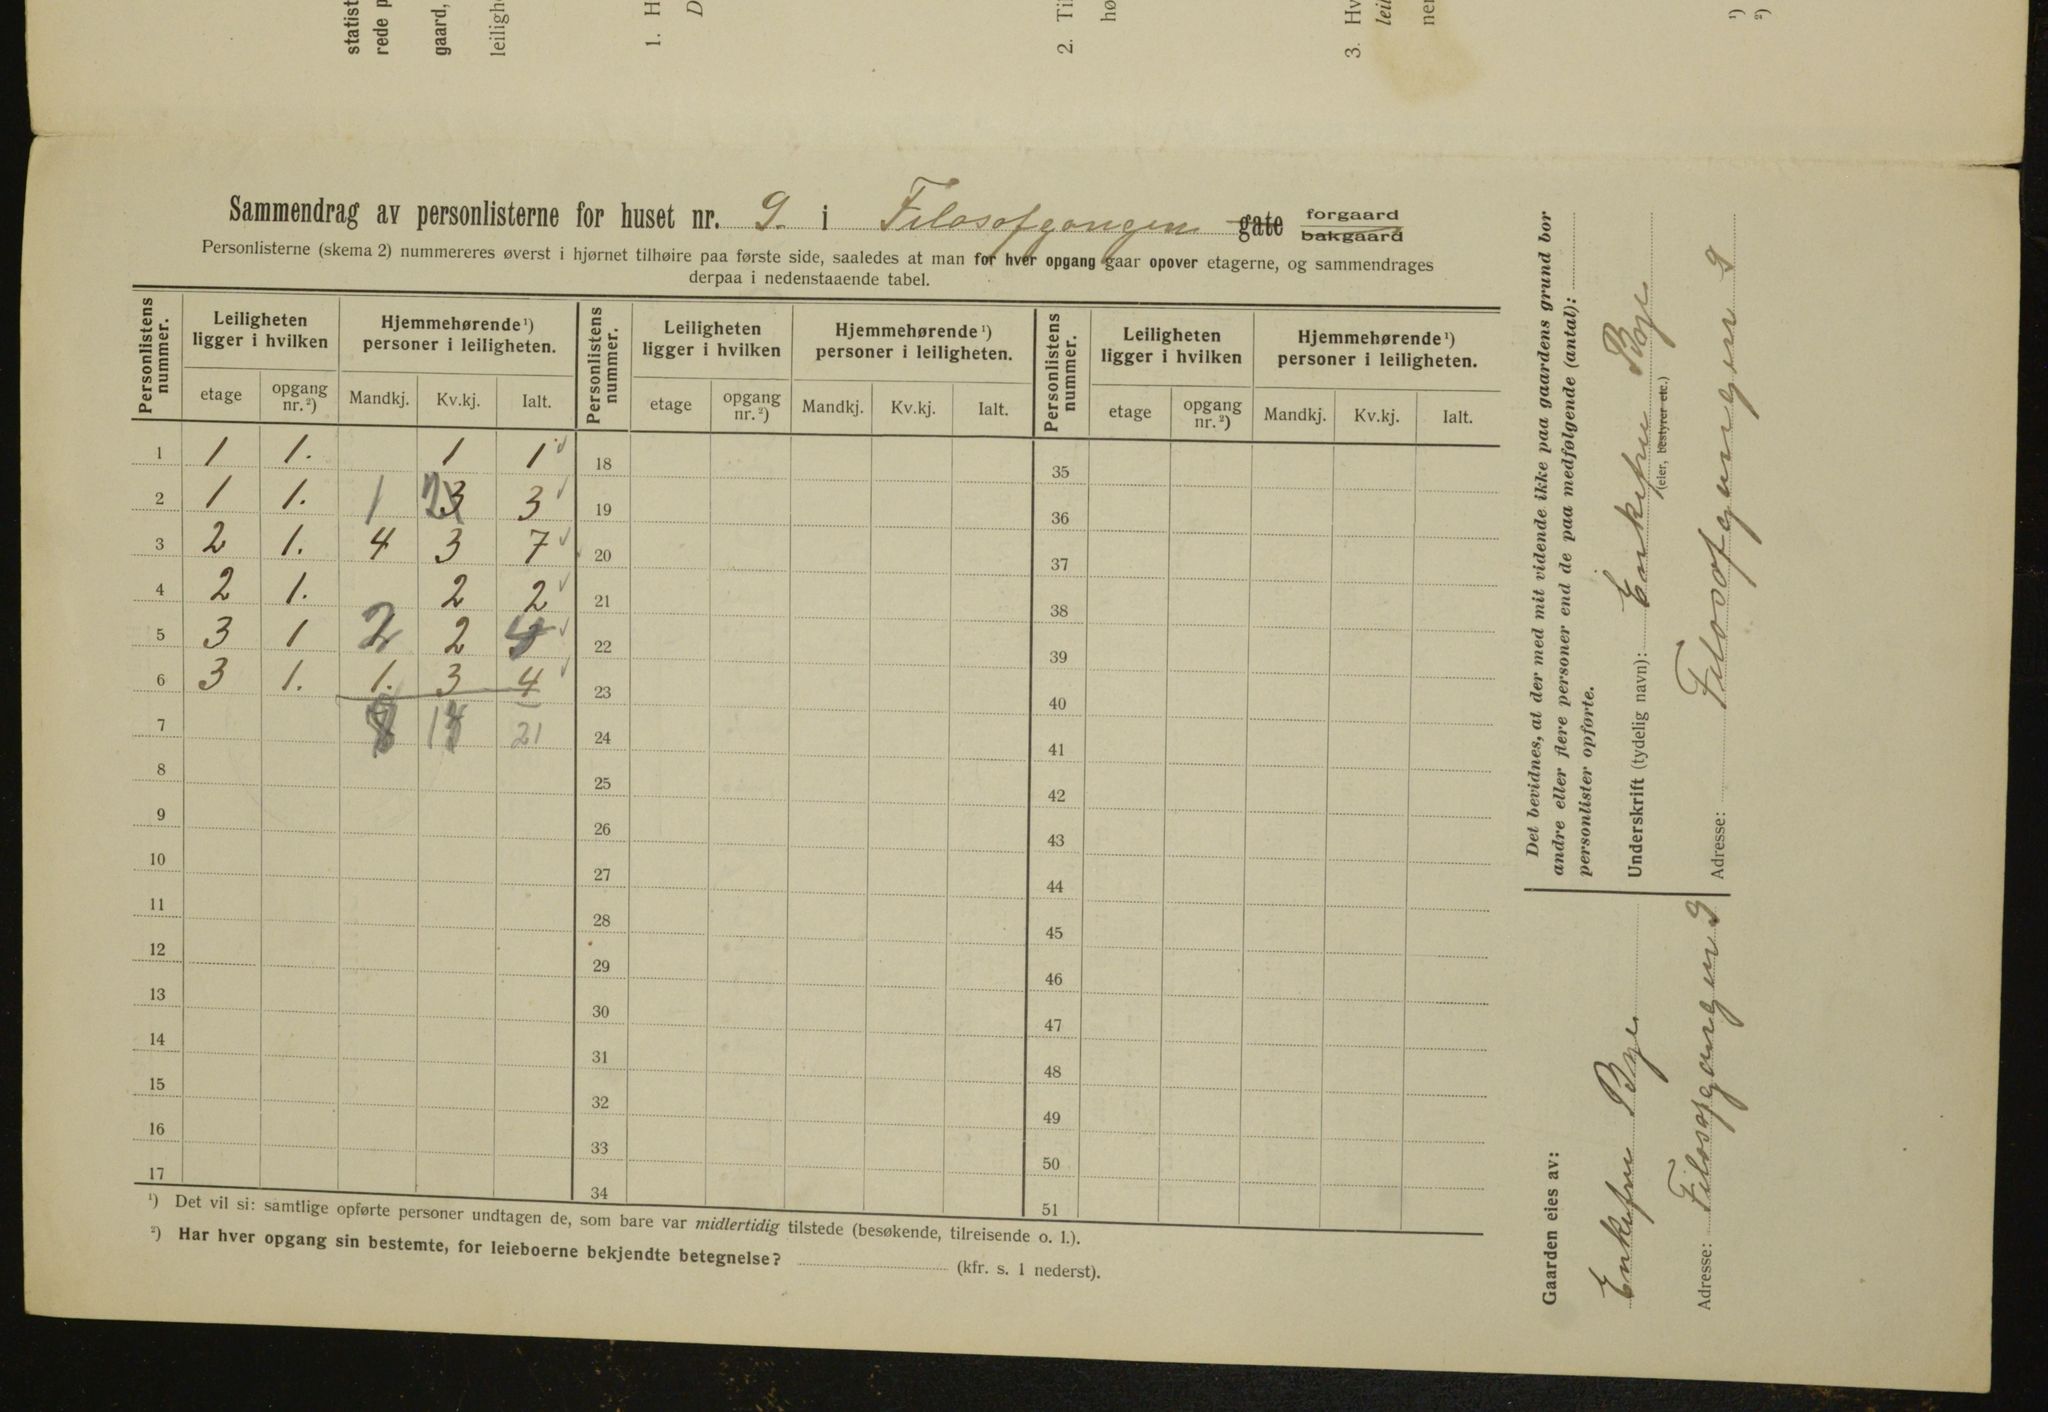 statist
rede p
gaard,
leiligh
1. H
D
2. Ti
hø
3. Hv
leil
ner
¹)
²)
Sammendrag av personlisterne for huset nr. 9. i Filosofgangen gate forgaard bakgaard
Personlisterne (skema 2) nummereres øverst i hjørnet tilhøire paa første side, saaledes at man for hver opgang gaar opover etagerne, og sammendrages
derpaa i nedenstaaende tabel.
Personlistens nummer. | Leiligheten ligger i hvilken | Hjemmehørende¹) personer i leiligheten. | Personlistens nummer. | Leiligheten ligger i hvilken | Hjemmehørende¹) personer i leiligheten. | Personlistens nummer. | Leiligheten ligger i hvilken | Hjemmehørende¹) personer i leiligheten.
etage | opgang nr.²) | Mandkj. | Kv.kj. | Ialt. | etage | opgang nr.²) | Mandkj. | Kv.kj. | Ialt. | etage | opgang nr.²) | Mandkj. | Kv.kj. | Ialt.
1 | 1 | 1. | | 1 | 1 ✓ | 18 | 35
2 | 1 | 1. | 1 | 2 3 | 3 ✓ | 19 | 36
3 | 2 | 1. | 4 | 3 | 7 ✓ | 20 | 37
4 | 2 | 1. | | 2 | 2 ✓ | 21 | 38
5 | 3 | 1 | 2 | 2 | 4 ✓ | 22 | 39
6 | 3 | 1. | 1. | 3 | 4 ✓ | 23 | 40
7 | | | 8 | 1 | 21 | 24 | 41
8 | 25 | 42
9 | 26 | 43
10 | 27 | 44
11 | 28 | 45
12 | 29 | 46
13 | 30 | 47
14 | 31 | 48
15 | 32 | 49
16 | 33 | 50
17 | 34 | 51
¹) Det vil si: samtlige opførte personer undtagen de, som bare var midlertidig tilstede (besøkende, tilreisende o. l.).
²) Har hver opgang sin bestemte, for leieboerne bekjendte betegnelse? (kfr. s. 1 nederst).
Det bevidnes, at der med mit vidende ikke paa gaardens grund bor
andre eller flere personer end de paa medfølgende (antal):
personlister opførte.
Underskrift (tydelig navn): Enkefru Bye
(eier, bestyrer etc.)
Adresse: Filosofgangen 9
Gaarden eies av:
Enkefru Bye
Adresse: Filosofgangen 9